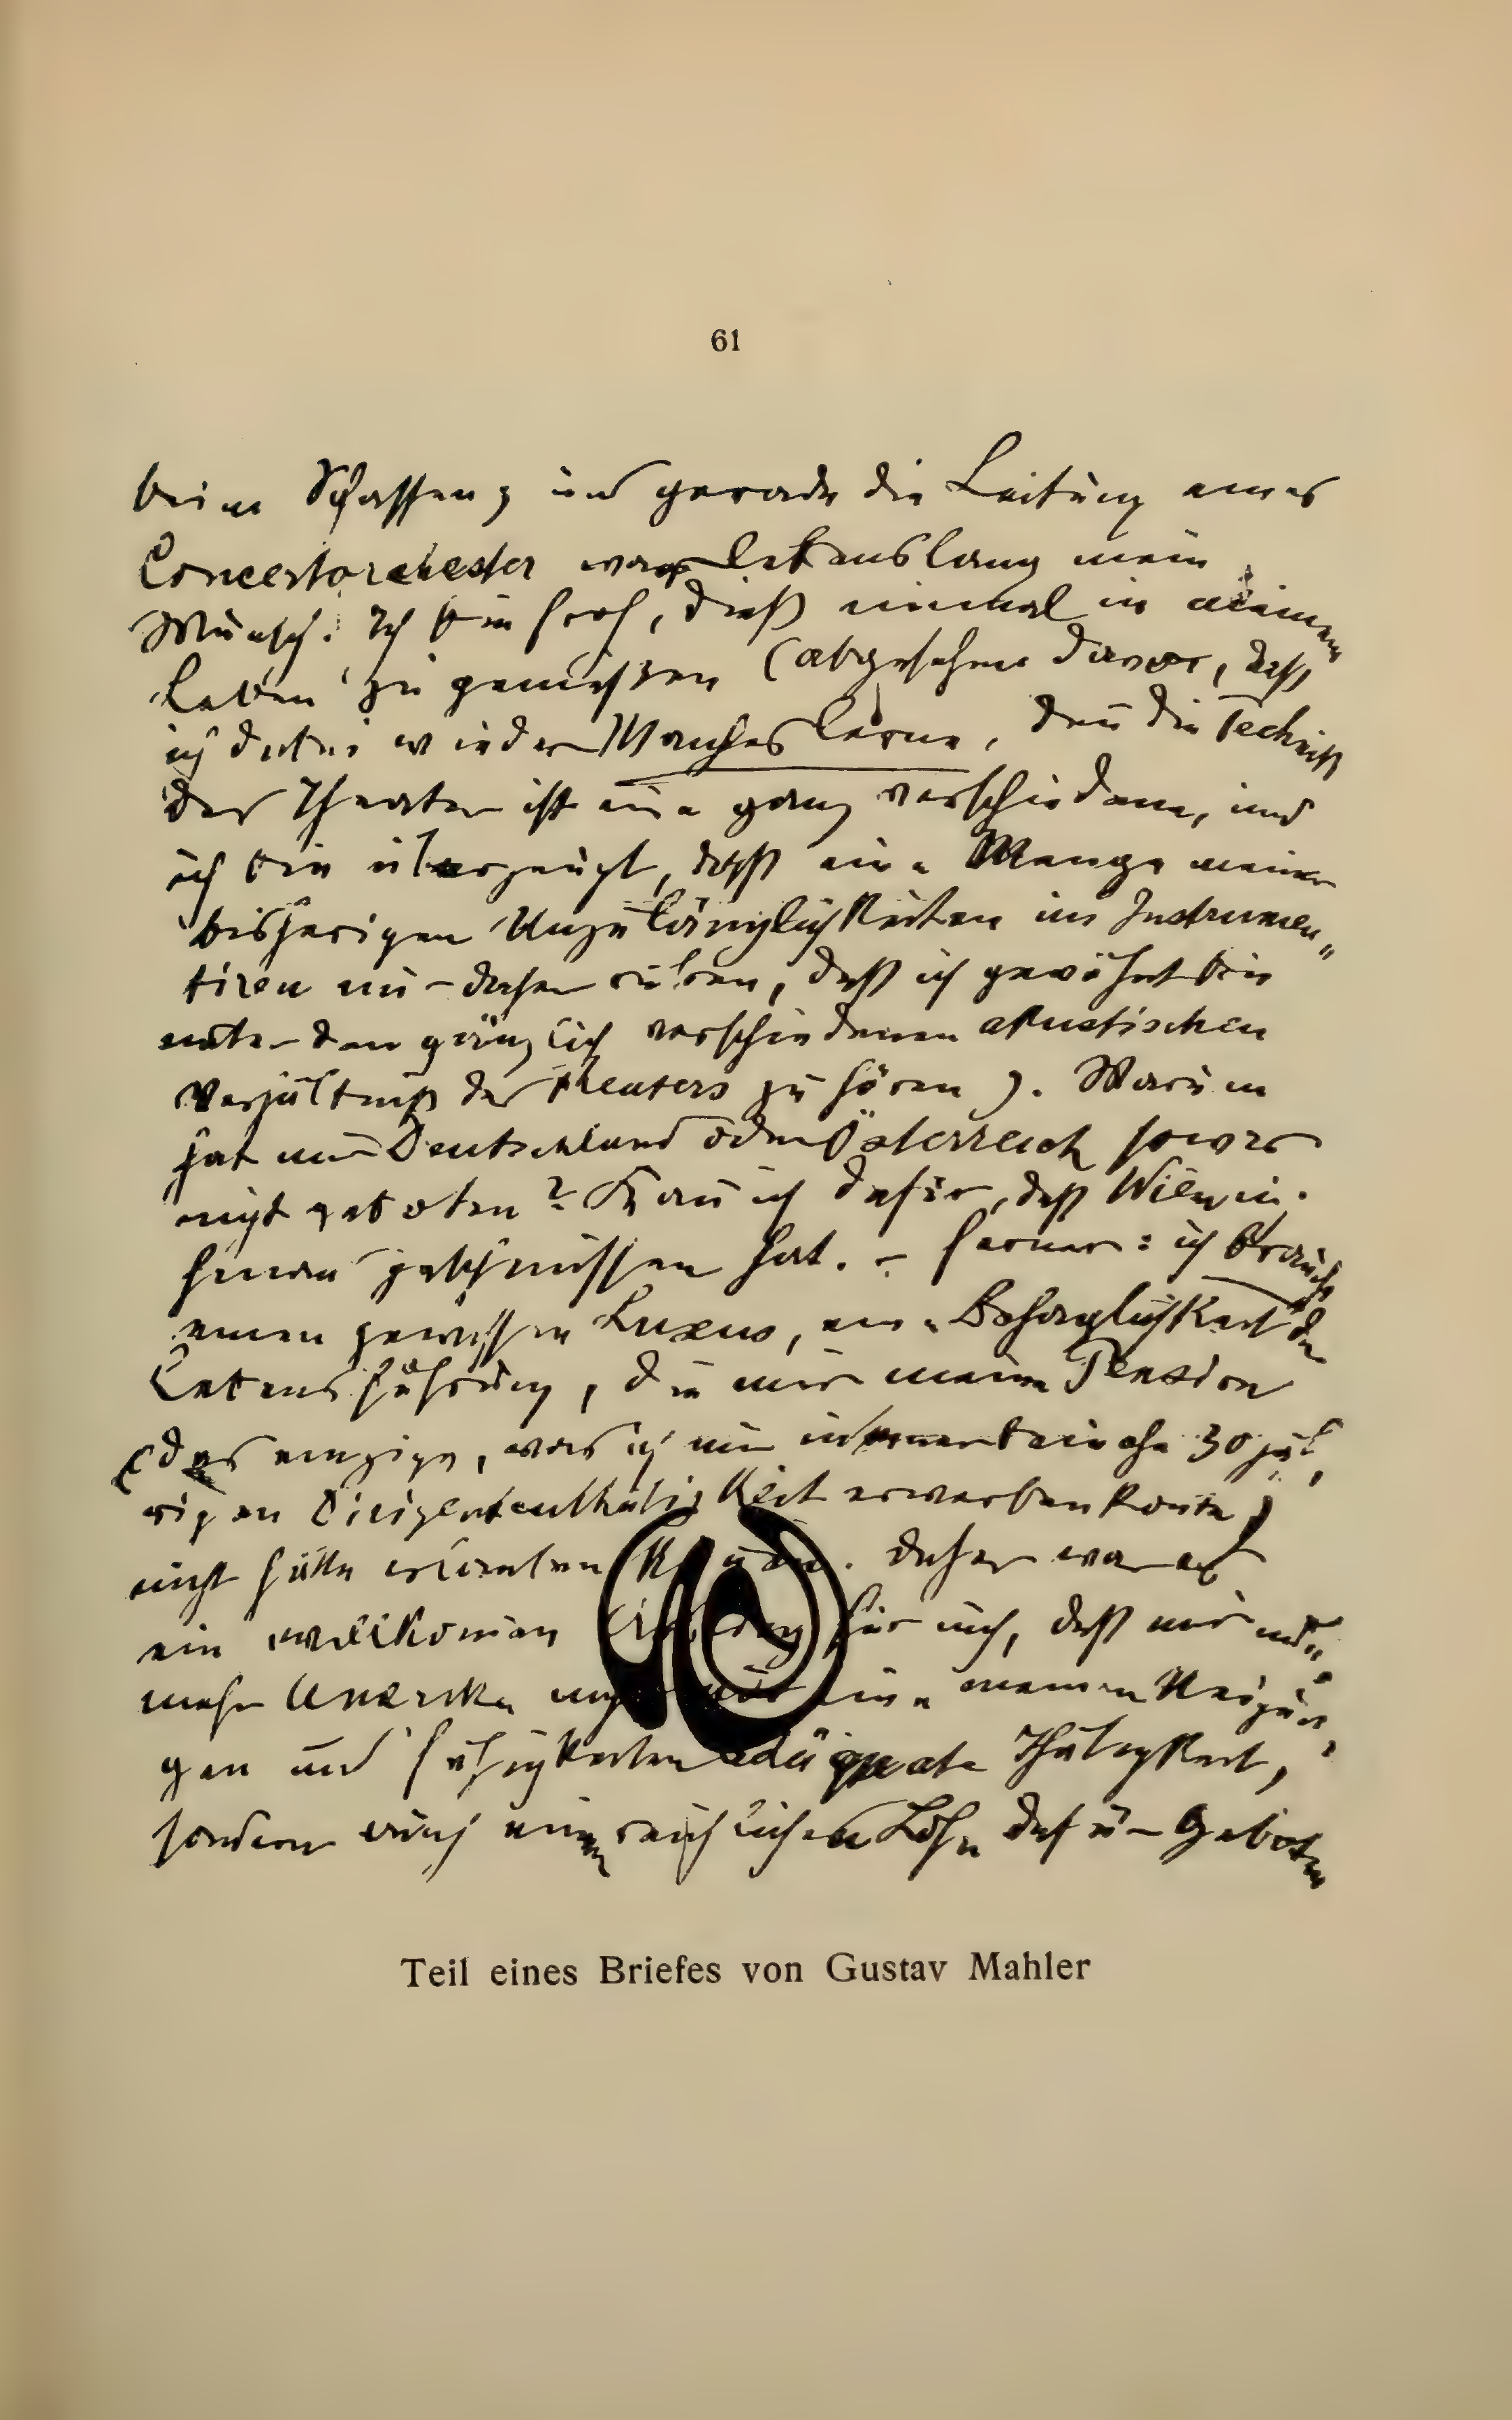 61
beim Schaffen; und gerade die Leitung eines
Concertorchester war lebenslang mein
Wunsch. Ich bin froh, dieß einmal in meinem
Leben zu genießen (abgesehen davon, daß
ich dabei wieder Manches lerne, den̅ die Technik
des Theater ist eine ganz verschiedene, und
ich bin überzeugt, daß eine Menge meiner
bisherigen Unzulänglichkeiten im Instrumen„
tiren nur daher rühren, daß ich gewöhnt bin
unter den gänzlich verschiedenen akustischen
Verhältniß des Theaters zu hören). Warum
hat mir Deutschland oder Österreich sowas
nicht geboten? Kan̅ ich dafür, daß Wien mich
hinaus geschmissen hat. – Ferner: ich brauche
einen gewissen Luxus, eine Behaglichkeit der
Lebensführung, die mir meine Pension
(das einzige, was ich mir in einer beinahe 30 jäh,
rigen Dirigententhätigkeit erwerben kon̅te)
nicht hätte erlauben kön̅en. Daher war es
ein willkom̅en für mich, daß mir nun„
mehr Amerika nicht nur eine meinen Neigun,
gen und Fähigkeiten adäquate Thätigkeit,
sondern auch einen reichlichen Lohn dafür geboten
Teil eines Briefes von Gustav Mahler